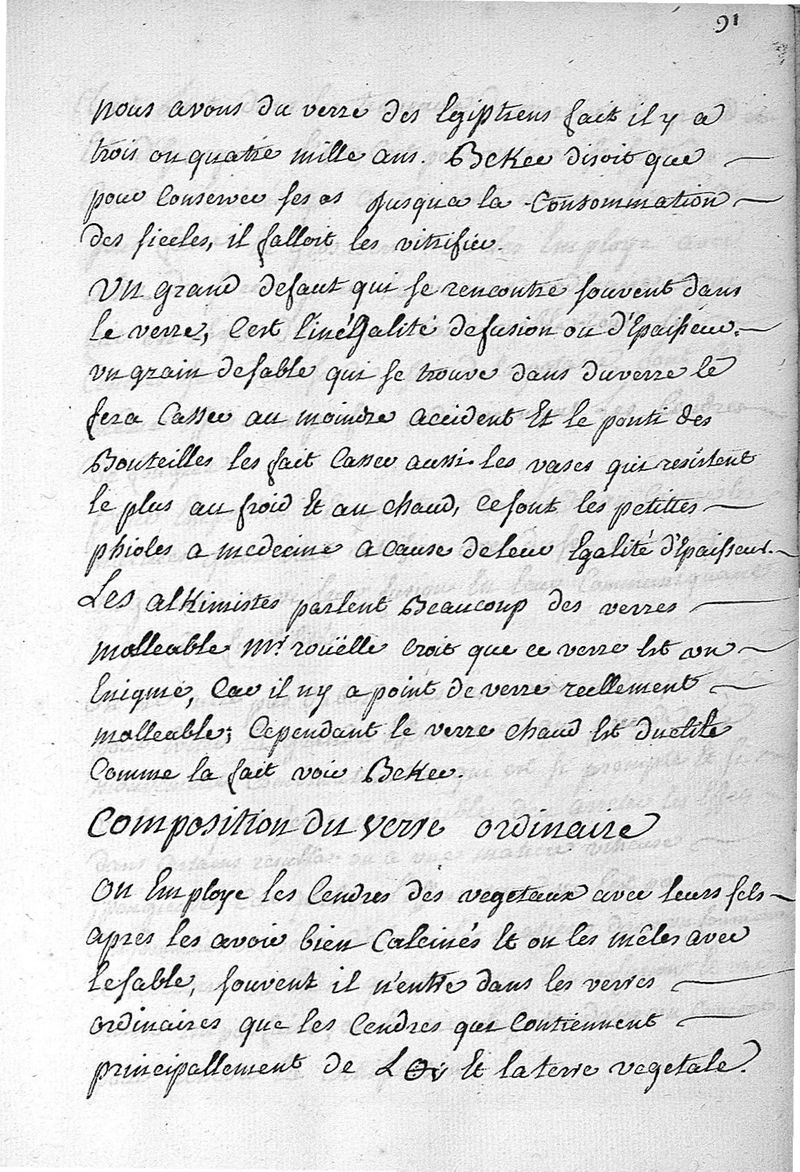 91
nous avons du verre des Egiptiens fait il y a
trois ou quatre mille ans. Beker disoit que
pour Conserver ses os jusqua la Consommation
des siecles, il falloit les vitrifier.
un grand defaut qui se rencontre souvent dans
le verre, C'est l'inégalité de fusion ou d'Epaisseur.
un grain de sable qui se trouve dans du verre le
fera Casser au moindre accident Et le ponti des
Bouteilles les fait Casser aussi. les vases qui resistent
le plus au froid Et au chaud, ce sont les petittes
phioles a medecine a cause de leur Egalité d'Epaisseur.
Les alKimistes parlent Beaucoup des verres
malleable Mr. roüelle croit que ce verre Est un
Enigme, Car il n'y a point de verre réellement
malleable; Cependant le verre chaud Est ductile
Comme la fait voir Beker.
Composition du verre ordinaire
on Employe les Cendres des vegetaux avec leurs sels
apres les avoir bien Calcinés Et on les mêles avec
le sable, souvent il n'entre dans les verres
ordinaires que les Cendres qui Contiennent
principallement de Et la terre vegetale.